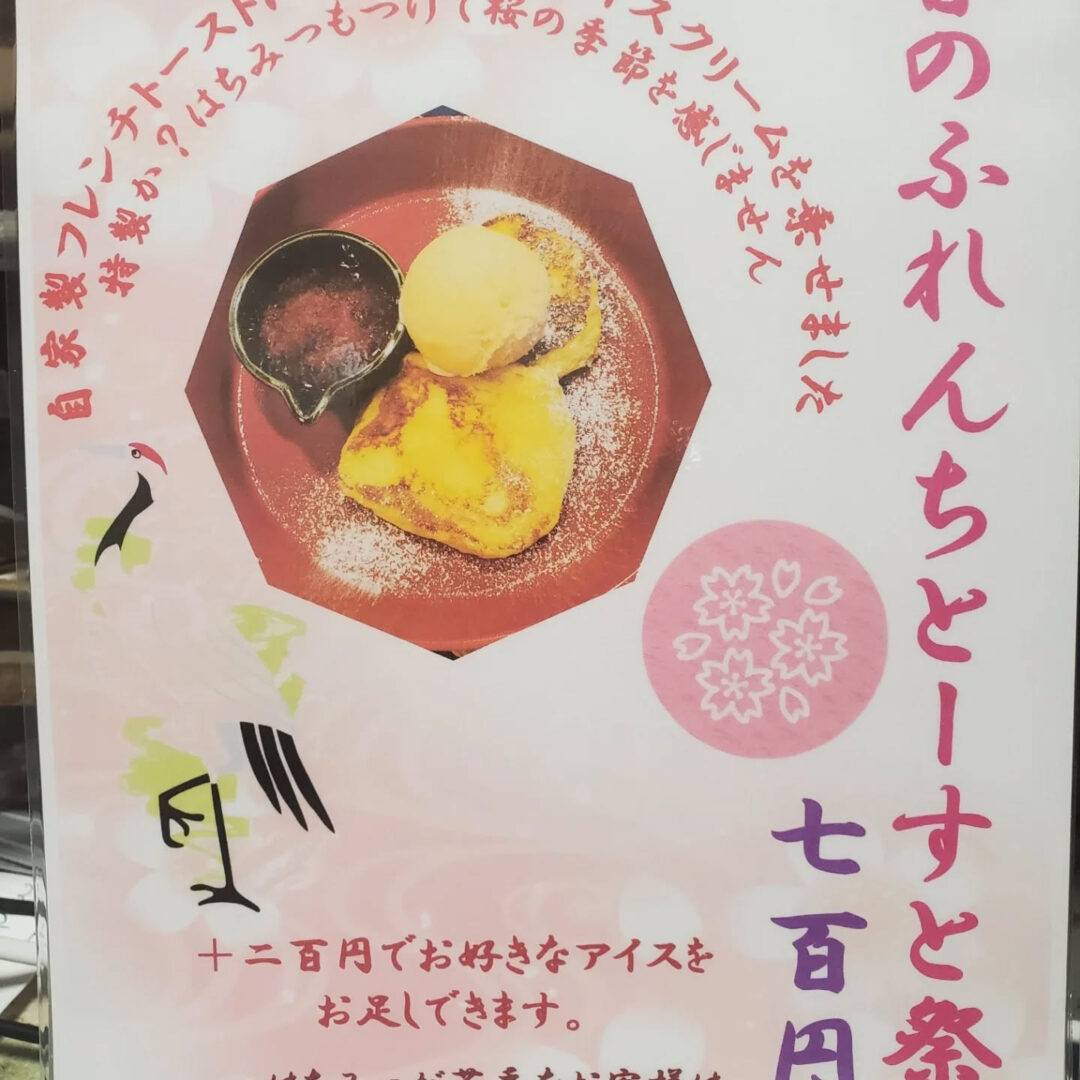 のふれんちとーすと祭
七百円
自家製フレンチトースト
スクリームを乗せました
特製か?はちみつもつけて桜の季節を感じません
+二百円でお好きなアイスを
お足しできます。
はちみつが苦手なお客様は